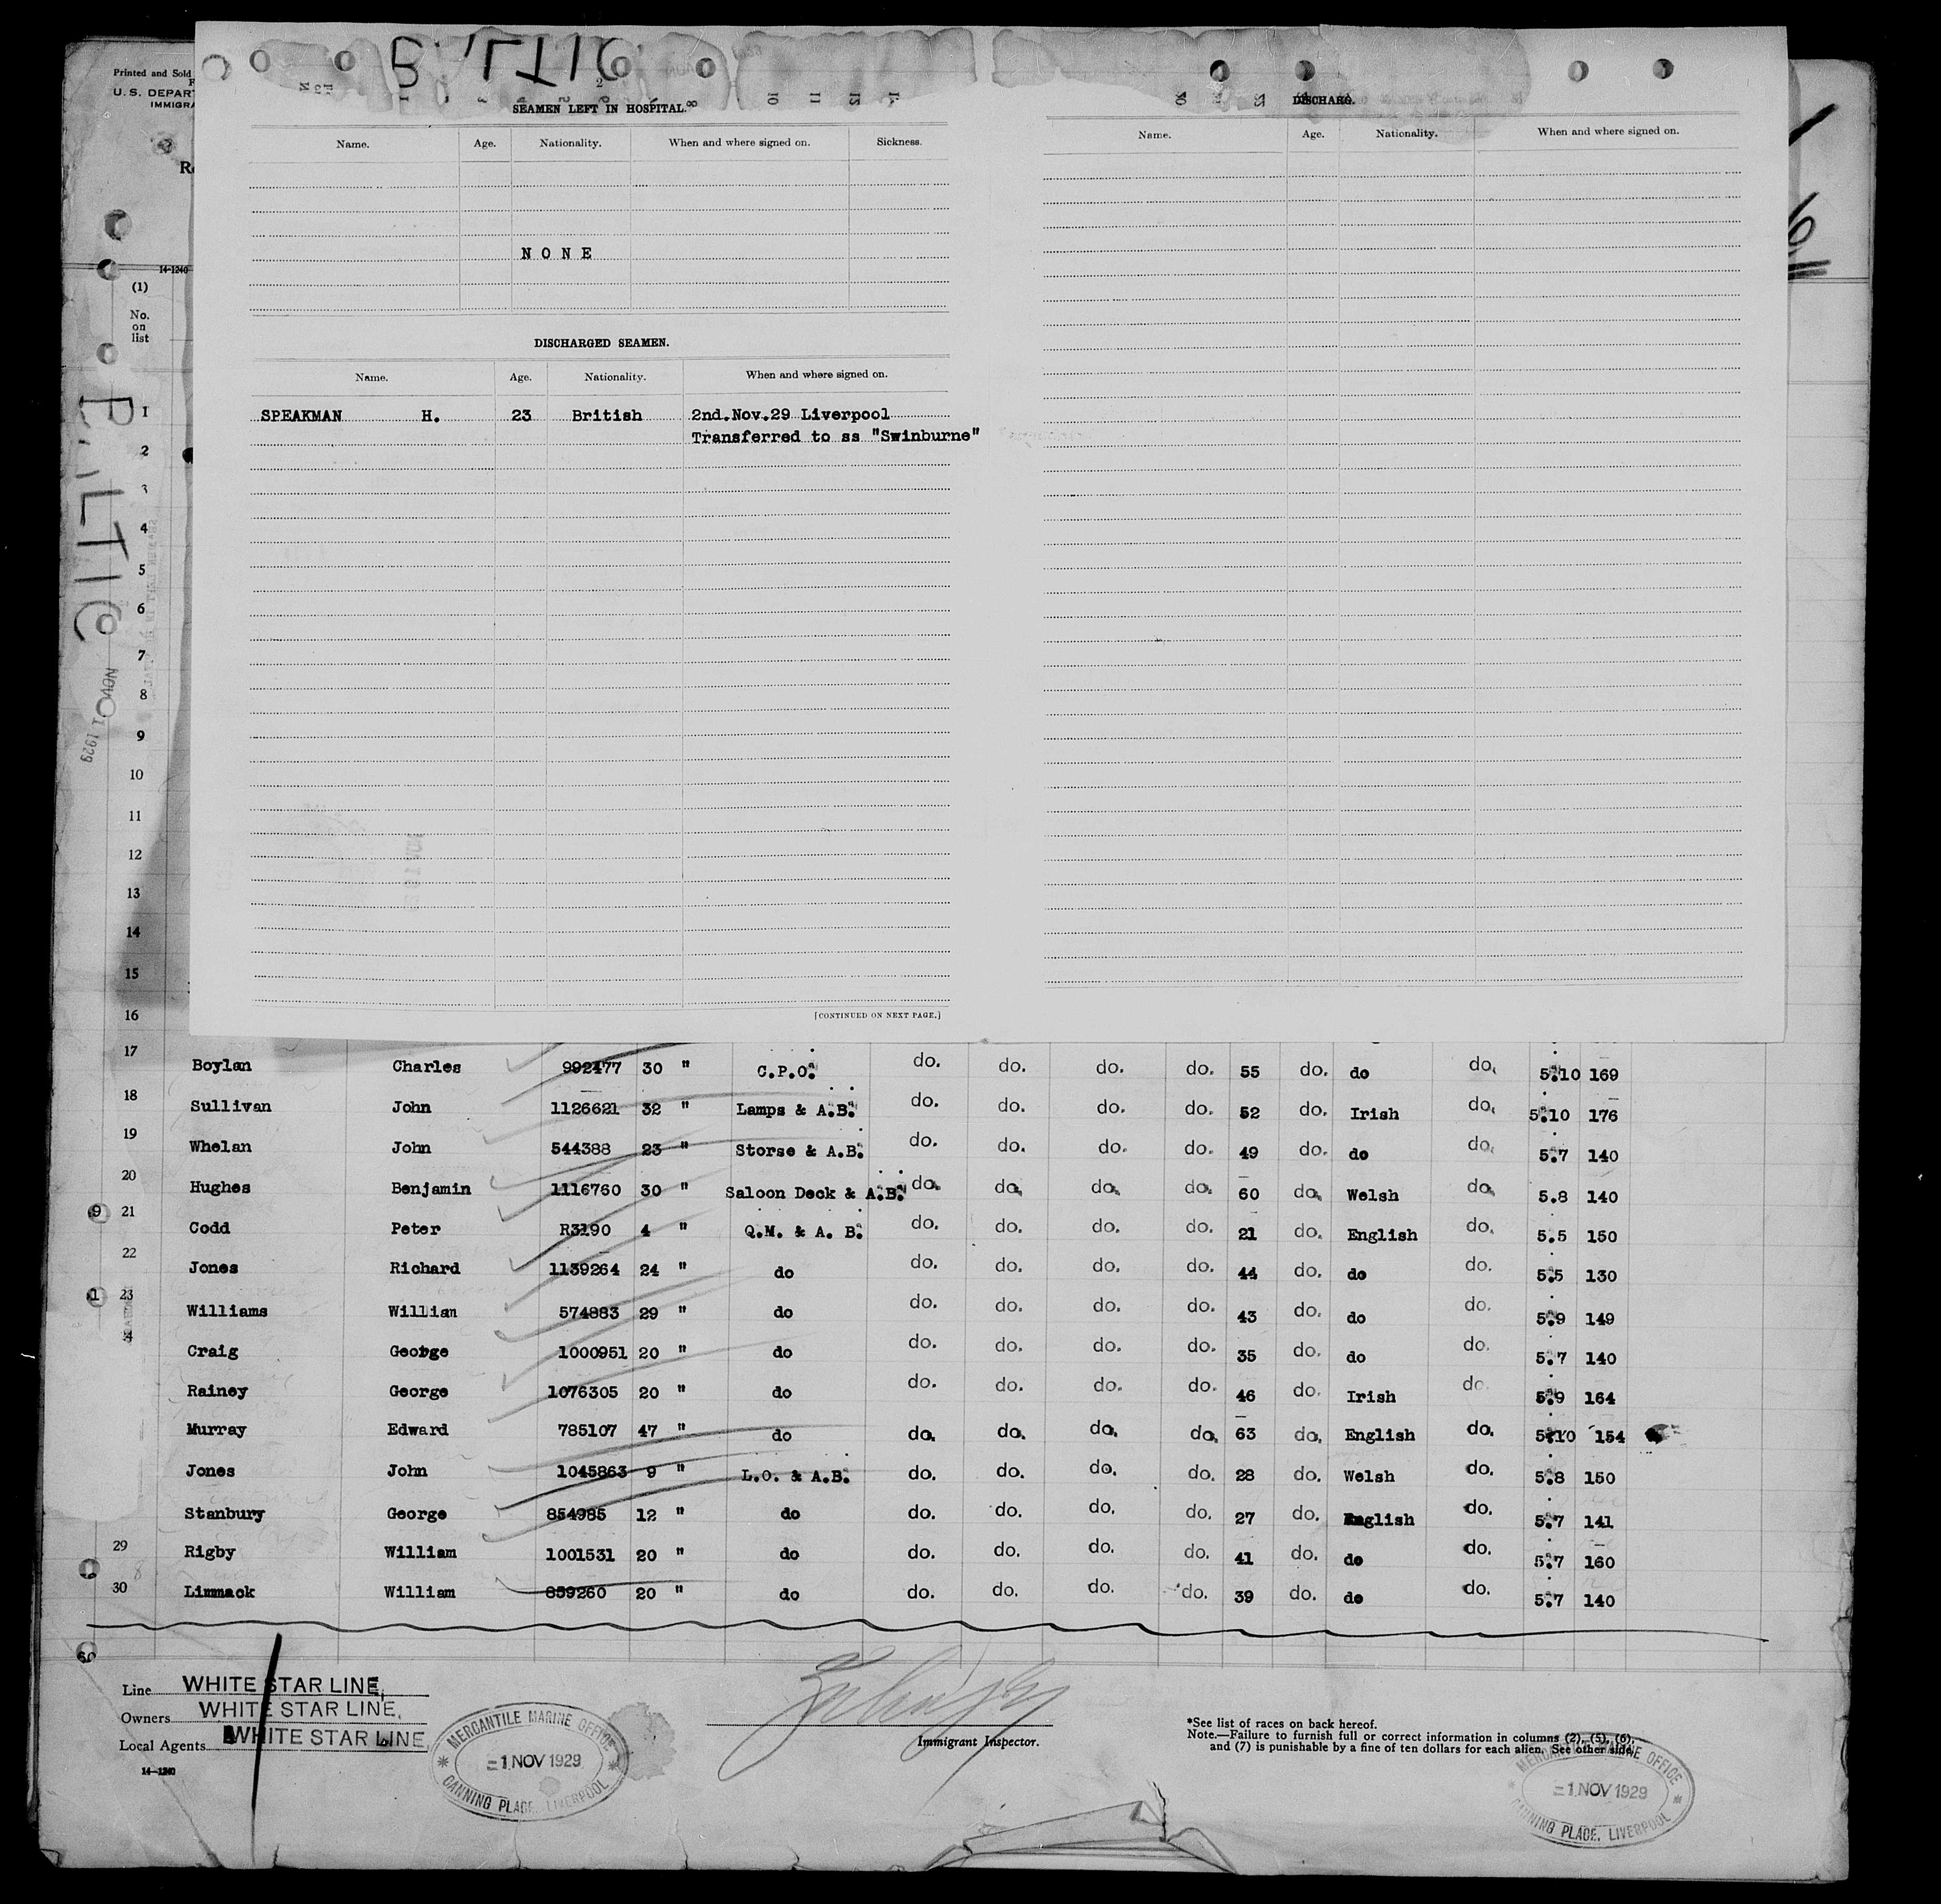 Printed and Sold
U.S. DEPAR
IMMIGRA
14-1240
(1)
No.
on
list
SEAMEN LEFT IN HOSPITAL.
Name. Age. Nationality. When and where signed on. Sickness.
NONE
DISCHARGED SEAMEN.
Name. Age. Nationality. When and where signed on.
SPEAKMAN H. 23 British 2nd.Nov.29 Liverpool
Transferred to ss "Swinburne"
[CONTINUED ON NEXT PAGE.]
DISCHARG.
Name. Age. Nationality. When and where signed on.
1
2
3
4
5
6
7
8
9
10
11
12
13
14
15
16
17 Boylan Charles 992477 30 " C.P.O. do. do. do. do. 55 do. do do. 5.10 169
18 Sullivan John 1126621 32 " Lamps & A.B. do. do. do. do. 52 do. Irish do. 5.10 176
19 Whelan John 544388 23 " Storse & A.B. do. do. do. do. 49 do. do do. 5.7 140
20 Hughes Benjamin 1116760 30 " Saloon Deck & A.B. do. do. do. do. 60 do. Welsh do. 5.8 140
21 Codd Peter R3190 4 " Q.M. & A. B. do. do. do. do. 21 do. English do. 5.5 150
22 Jones Richard 1139264 24 " do do. do. do. do. 44 do. do do. 5.5 130
23 Williams Willian 574883 29 " do do. do. do. do. 43 do. do do. 5.9 149
Craig George 1000951 20 " do do. do. do. do. 35 do. do do. 5.7 140
Rainey George 1076305 20 " do do. do. do. do. 46 do. Irish do. 5.9 164
Murray Edward 785107 47 " do do. do. do. do. 63 do. English do. 5.10 154
Jones John 1045863 9 " L.O. & A.B. do. do. do. do. 28 do. Welsh do. 5.8 150
Stanbury George 854985 12 " do do. do. do. do. 27 do. English do. 5.7 141
29 Rigby William 1001531 20 " do do. do. do. do. 41 do. do do. 5.7 160
30 Limmack William 859260 20 " do do. do. do. do. 39 do. do do. 5.7 140
Line WHITE STAR LINE,
Owners WHITE STAR LINE.
Local Agents WHITE STAR LINE.
14-1240
MERCANTILE MARINE OFFICE
1 NOV 1929
CANNING PLACE, LIVERPOOL
Immigrant Inspector.
*See list of races on back hereof.
Note.—Failure to furnish full or correct information in columns (2), (5), (6),
and (7) is punishable by a fine of ten dollars for each alien. See other side.
MERCANTILE MARINE OFFICE
1 NOV 1929
CANNING PLACE, LIVERPOOL